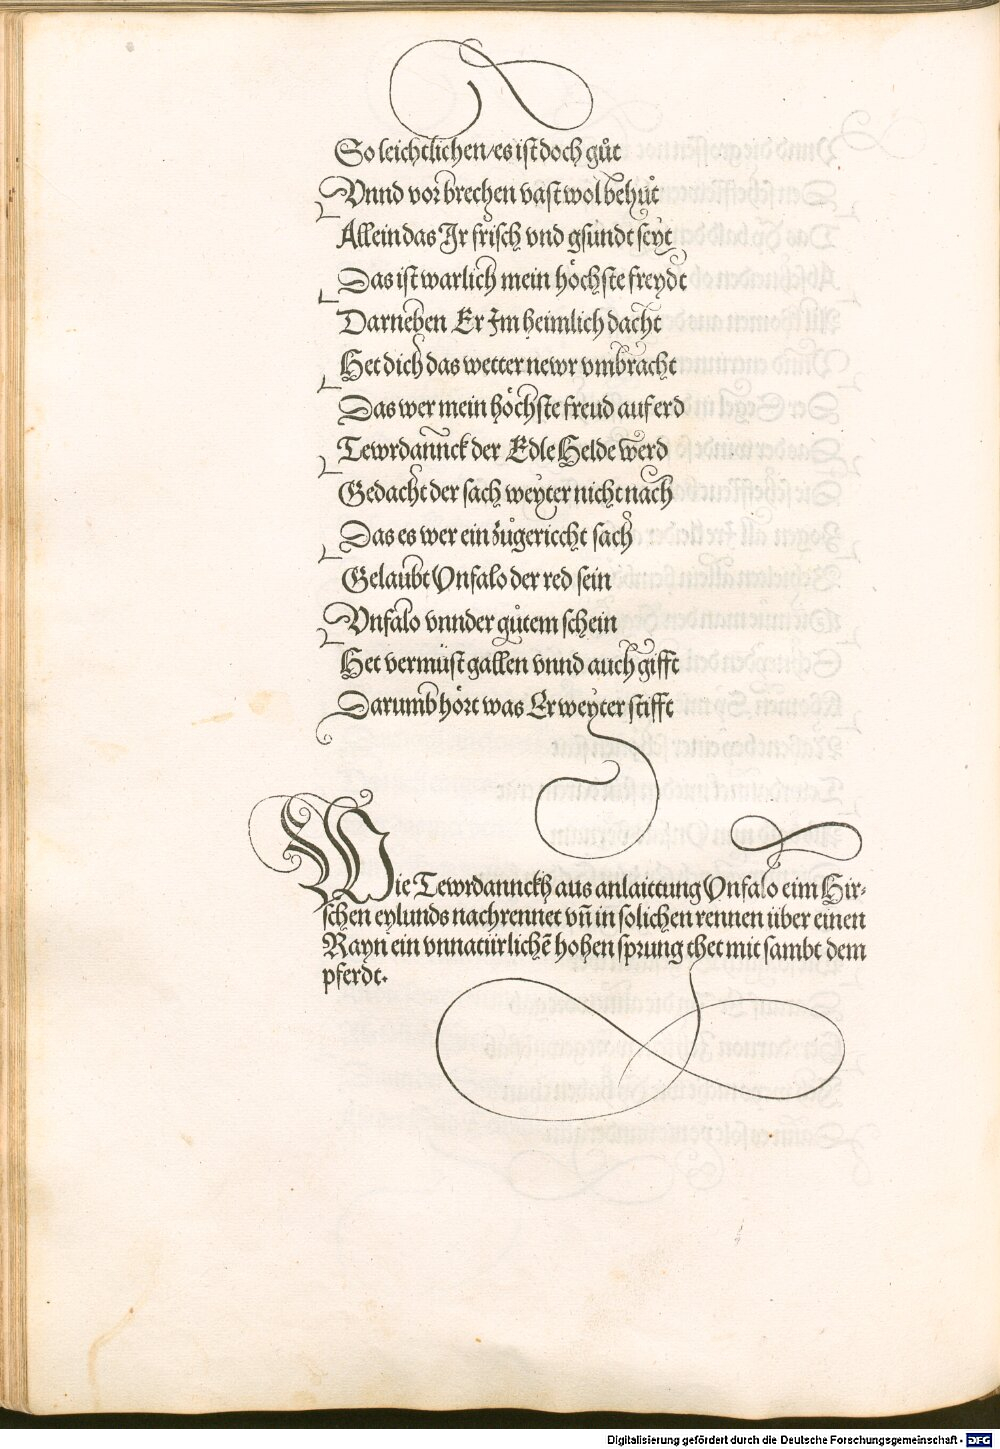 So leichtlichen/es ist doch gůt
Vnnd vor brechen vast wol behůt
Allein das Ir frisch vnd gsundt seyt
Das ist warlich mein höchste freydt
Darneben Er Im heimlich dacht
Het dich das wetter newr vmbracht
Das wer mein höchste freud auf erd
Tewrdannck der Edle Helde werd
Gedacht der sach weyter nicht nach
Das es wer ein zůgericcht sach
Gelaubt Vnfalo der red sein
Vnfalo vnnder gůtem schein
Het vermüst gallen vnnd auch gifft
Darumb hört was Er weyter stifft
Wie Tewrdannckh aus anlaittung Vnfalo eim Hir-
schen eylunds nachrennet vñ in solichen rennen über einen
Rayn ein vnnatürlichē hohen sprung thet mit sambt dem
pferdt.
Digitalisierung gefördert durch die Deutsche Forschungsgemeinschaft - DFG